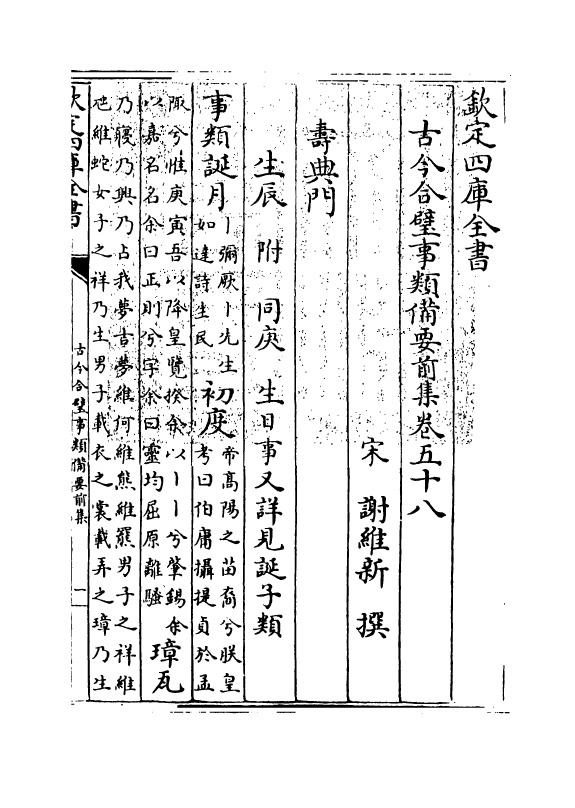 欽定四庫全書
古今合璧事類備要前集卷五十八
宋 謝維新 撰
壽典門
生辰 附 同庚 生日事又詳見誕子類
事類誕月 丨彌厥丨先生
如達詩生民
初度 帝高陽之苗裔兮朕皇
考曰伯庸攝提貞於孟
陬兮惟庚寅吾以降皇覽揆余以丨丨兮肇錫余
以嘉名名余曰正則兮字余曰靈均屈原離騷
璋瓦
乃寢乃興乃占我夢吉夢維何維熊維羆男子之祥維
虺維蛇女子之祥乃生男子載衣之裳載弄之璋乃生
欽定四庫全書
古今合璧事類備要前集
一